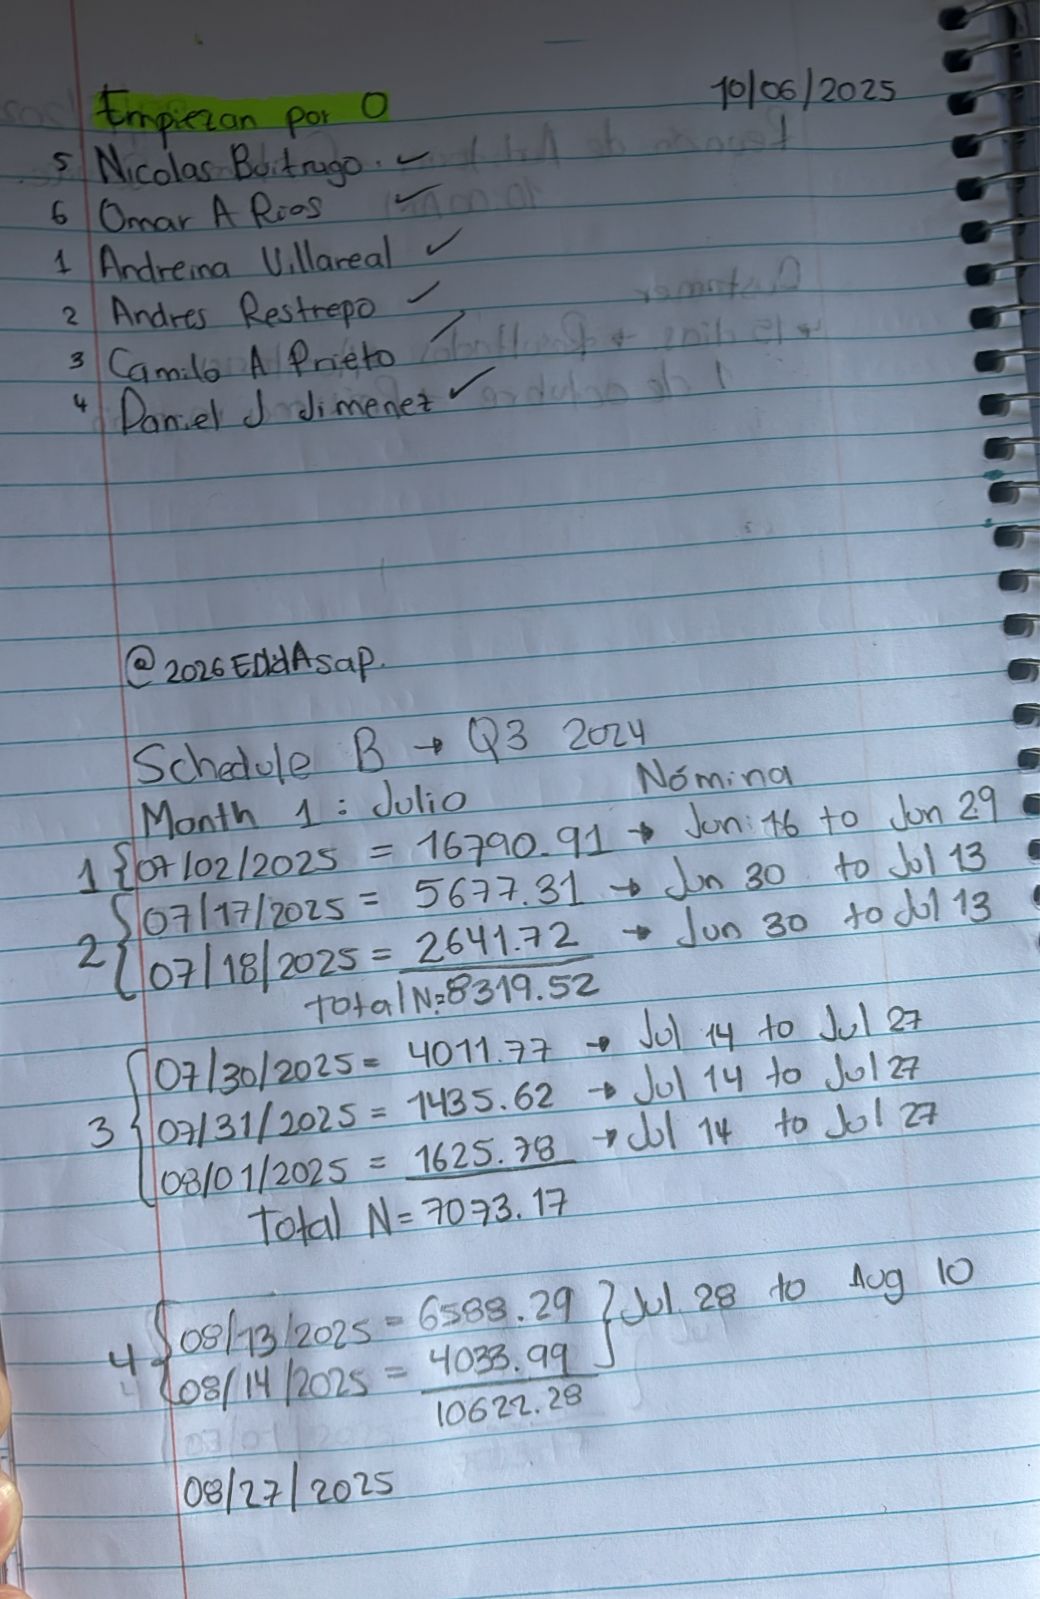 10/06/2025
Empiezan por O
5 Nicolas Buitrago. ✓
6 Omar A Rios ✓
1 Andreina Villareal ✓
2 Andres Restrepo ✓
3 Camilo A Prieto ✓
4 Daniel J Jimenez ✓
@2026EDdAsap.
Schedule B → Q3 2024
Month 1 : Julio Nómina
1 { 07/02/2025 = 16790.91 → Jun: 16 to Jun 29
2 { 07/17/2025 = 5677.31 → Jun 30 to Jul 13
07/18/2025 = 2641.72 → Jun 30 to Jul 13
Total N:=8319.52
3 { 07/30/2025 = 4011.77 → Jul 14 to Jul 27
07/31/2025 = 1435.62 → Jul 14 to Jul 27
08/01/2025 = 1625.78 → Jul 14 to Jul 27
Total N = 7073.17
4 { 08/13/2025 = 6588.29 } Jul 28 to Aug 10
08/14/2025 = 4033.99
10622.28
08/27/2025